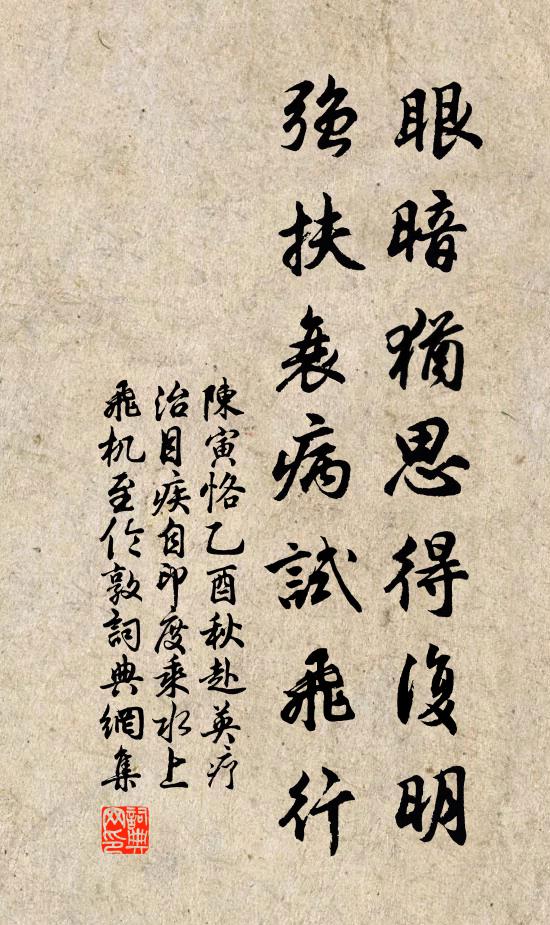 眼暗猶思得復明
強扶衰病試飛行
陳寅恪乙酉秋赴英疗
治目疾自印度乘水上
飛机至伦敦詞典網集
詞典
网印